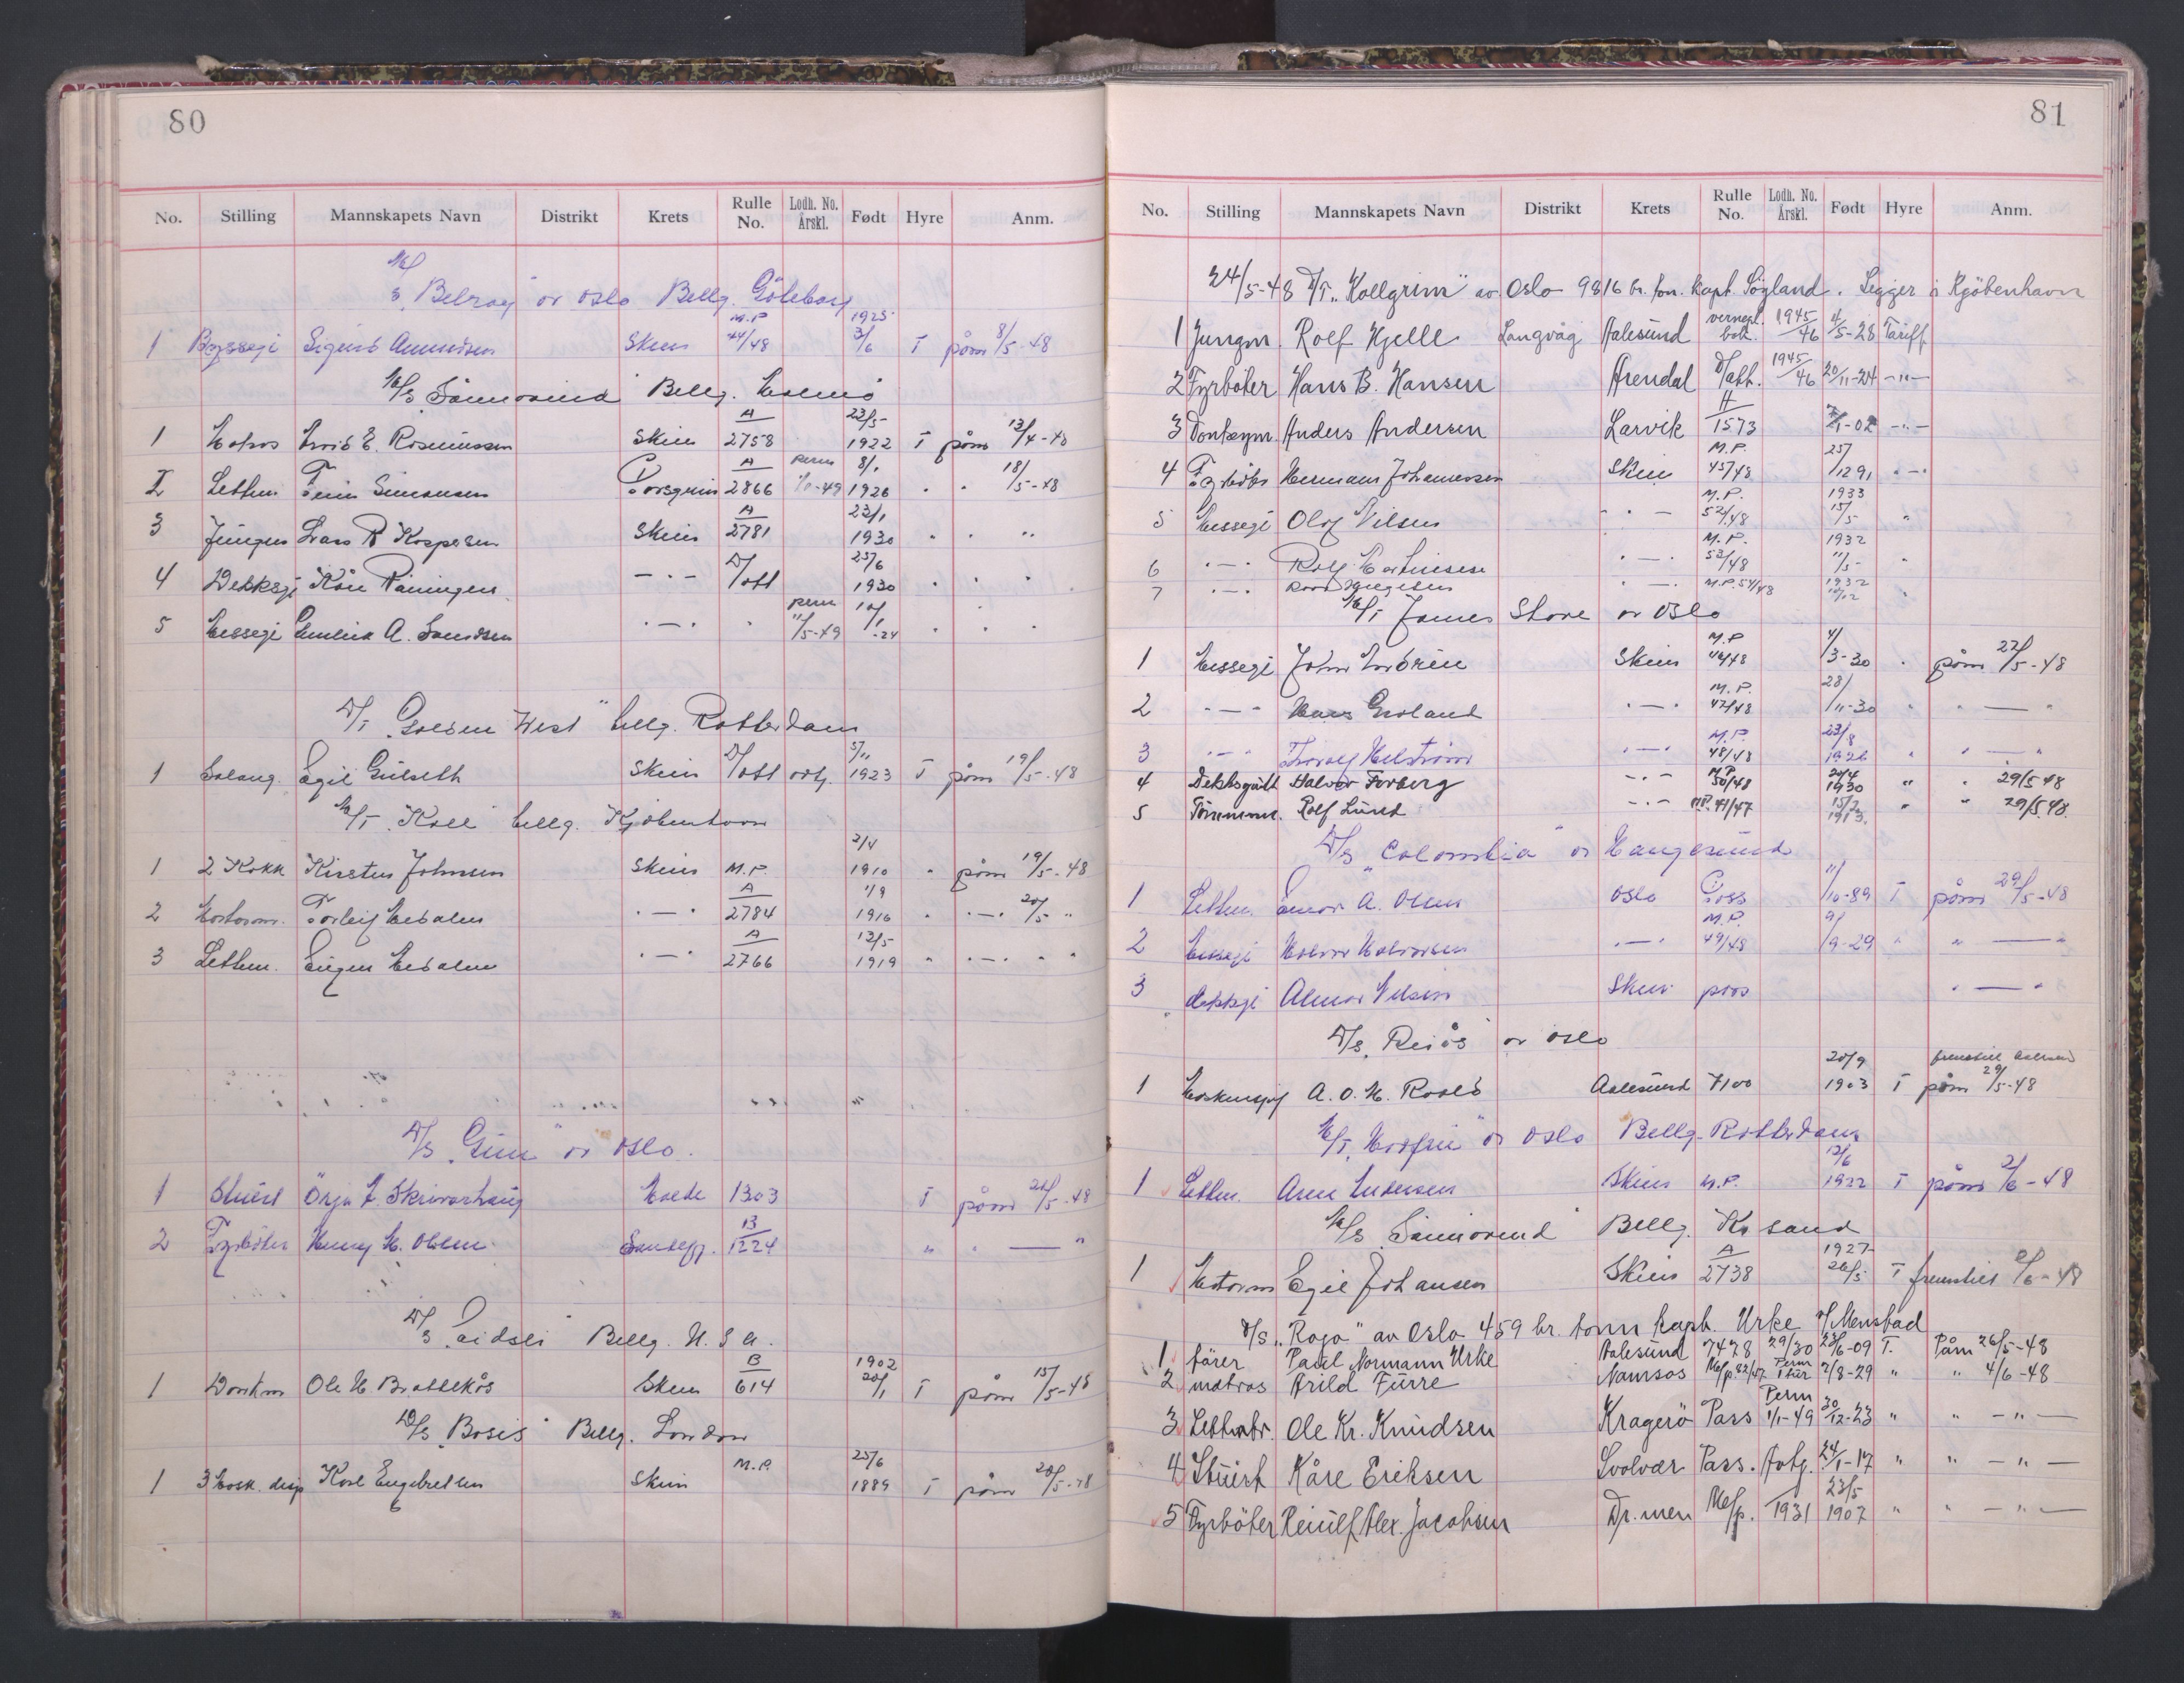 80
No. Stilling Mannskapets Navn Distrikt Krets Rulle No. Lodh. No. Årskl. Født Hyre Anm.
M/S "Belray" av Oslo Bellg. Göteborg
1 Sigurd Amundsen Skien M.P 44/48 1925 3/6 T påm 8/5-48
M/S "Sünnovind" Bellg.
1 Matros E. Rasmussen Skien A 2758 23/5- 1922 T påm 13/4-48
2 Lettm. Simonsen Porsgrun A 2866 perm 8/1 1926 " " 18/5-48
3 Jüngm Lars R Kaspersen Skien A 2781 23/1 1930 " " "
4 Dekksg Kåre Räningen -"- D/ått 25/6 1930 " " "
5 Messegj A. -"- " perm 11/5-49 10/1 -24 " " "
D/T "Golden West" bellg. Rotterdam
1 Salong. Egil Gülseth Skien D/ått 5/11 1923 T påm 19/5-48
M/T "Koll" bellg. Kjøbenhavn
1 2 Kokk Kirsten Johnsen Skien M.P. 2/4 1910 " påm 19/5-48
2 Motorm. Torleif Medalen -"- A 2784 1/9 1916 " -"- 20/5 "
3 Lettm. Eügen Medalen -"- A 2766 13/5- 1919 " -"- " "
D/S "Gün" av Oslo.
1 Stüert Skrivarhaug Molde 1303 T påm 22/5-48
2 Fyrböter Henry M. Olsen Sandefj. B 1224 " " — "
D/S "Eidsli" Bellg. U.S.A.
1 Donkm Ole H Brattekås Skien B 614 1902 20/1 T påm 15/5-48
D/S "Bosis" Bellg. London
1 3 Mask. disp Karl Engebretsen Skien M.P. 25/6 1889 T påm 20/5-48
81
No. Stilling Mannskapets Navn Distrikt Krets Rulle No. Lodh. No. Årskl. Født Hyre Anm.
24/5-48 D/T "Kollgrim" av Oslo 9816 br. ton. kapt. Sögland. Ligger i Kjöbenhavn
1 Jungm. Rolf Hjelle Langvåg Aalesünd vernepl. bok. 1945/46 4/5-28 Tariff
2 Fyrböter Hans B. Hansen Arendal D/ått. 1945/46 20/11-24 -"-
3 Donkeym. Anders Andersen Larvik A 1573 -02 -"-
4 Fyrböter Hermann Johannessen Skien M.P. 45/48 25/12 91 "-"
5 Messegj Olaf Nilsen "-" M.P. 52/48 1933 15/5 "
6 "-" Rolf Martinsen "-" M.P. 53/48 1932 11/5- "
7 "-" "-" M.P. 54/48 1932 "
M/T "James Stove" av Oslo
1 Messegj John Skien M.P 46/48 4/3-30 " påm 22/5-48
2 "-" Hans Groland "-" M.P. 47/48 28/11-30 " " — "
3 "-" Thoralf Helström "-" M.P. 48/48 23/8 1926 " " — "
4 Dekksgütt Halvor Forberg "-" M.P. 50/48 20/4 1930 " " 29/5 48
5 Tömmerm. Rolf Lund "-" M.P. 41/47 15/2 1913. " " 29/5 48.
D/S "Colombia" av Haugesund
1 Lettm. Einar A. Olsen Oslo Pass 11/10-89 T påm 29/5-48
2 Messegj Halvor Halvorsen "-" M.P. 49/48 9/9-29 " " — "
3 dekksgj Almar Nilsen Skien pass " — "
D/S "Reiås" av Oslo
1 A. O. H. Roald Aalesünd 7100 20/9 1903 T påm 29/5-48
M/T "Norfrü" av Oslo Bellg. Rotterdam
1 Lettm. Arne Andersen Skien M.P. 12/6 1922 T påm 2/6-48
M/S "Sünnovind" Bellg. Kr sand
1 Motorm Egil Johansen Skien A 2738 1927 26/5 T fremstilt 2/6-48
D/S "Roga" av Oslo 459 br. tonn kapt. Urke v/Menstad
1 förer Paul Normann Urke Aalesünd 7428 29/30 23/6-09 T. Påm 26/5-48
2 matros Arild Fürre Namsos M/p. 82/47 Perm 1 tür 2/8-29 " " 4/6-48
3 Lettmatr. Ole Kr. Knüdsen Kragerö Pass Perm 1/1-49 30/12-23 " " -"-
4 Stüert Kåre Eriksen Svolvær Pass. Avtj. 24/1-17 " " -"-
5 Fyrböter Reiülf Alex. Jacobsen Dr.men M/p. 1931 23/5 1907 " " -"-